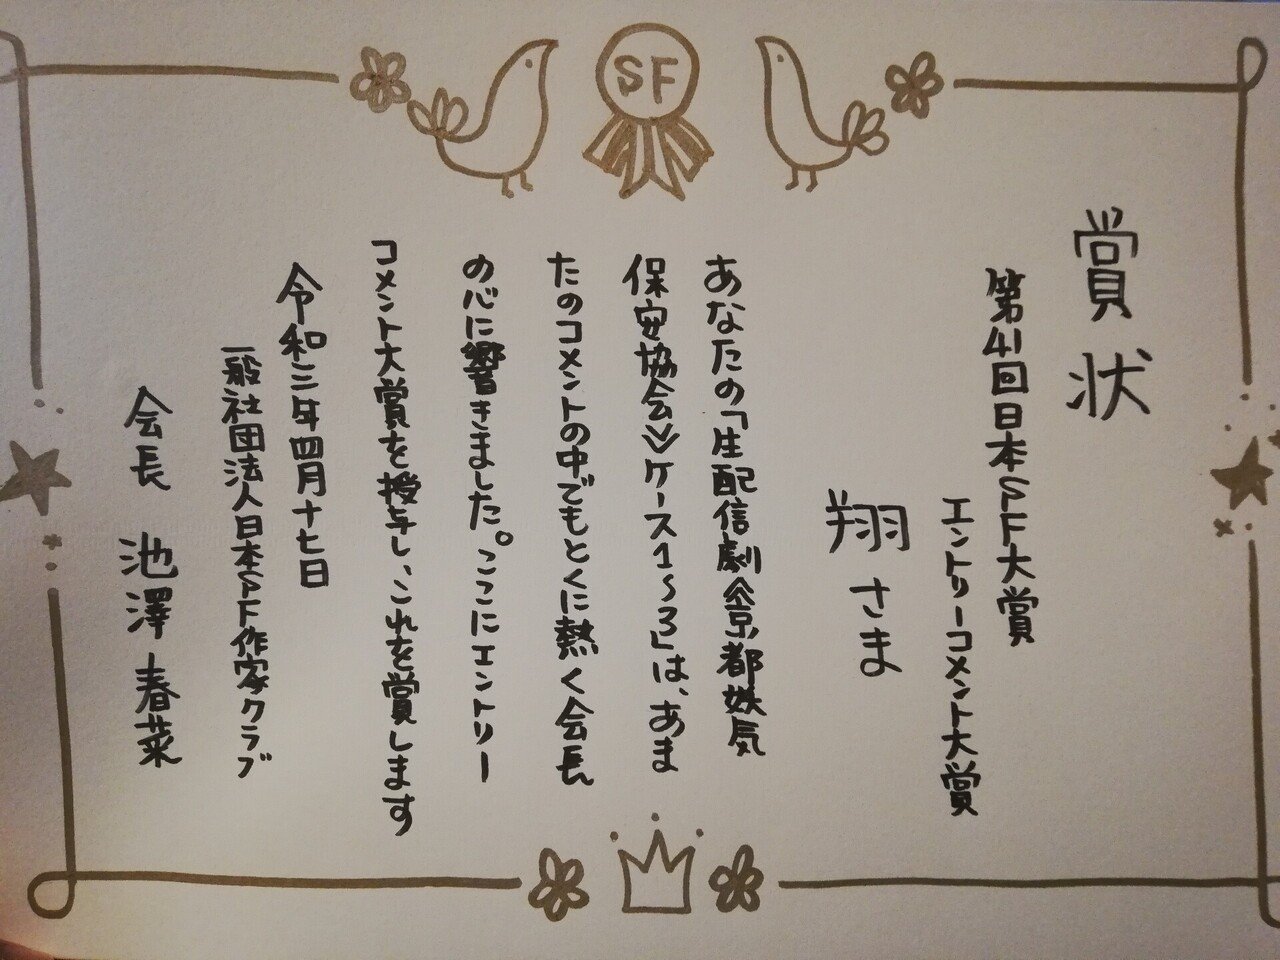 SF
賞状
第41回日本SF大賞
エントリーコメント大賞
翔さま
あなたの「生配信劇≪京都妖気
保安協会≫ケース1~3」は、あま
たのコメントの中でもとくに熱く会長
の心に響きました。ここにエントリー
コメント大賞を授与し、これを賞します
令和三年四月十七日
一般社団法人日本SF作家クラブ
会長 池澤春菜